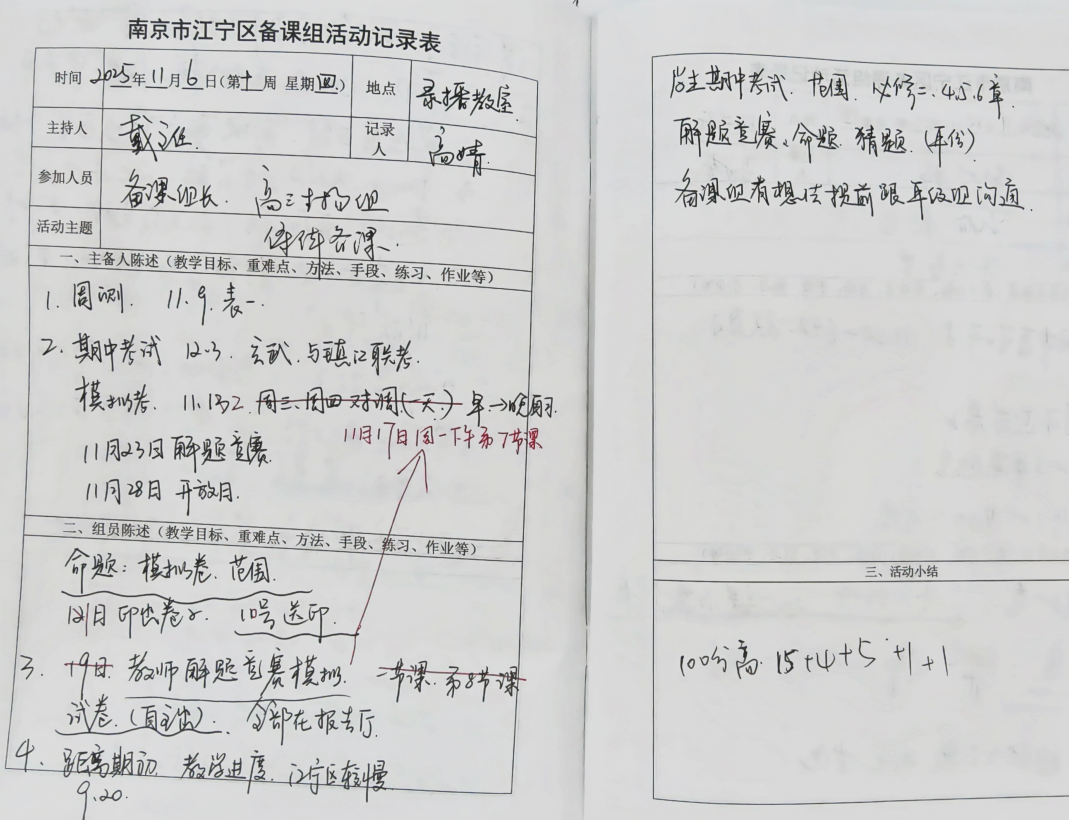 南京市江宁区备课组活动记录表
时间 2025年11月6日(第十周 星期四) 地点 录播教室
主持人 戴 记录人 高婧
参加人员 备课组长 高三 组
活动主题 集体备课.
一、主备人陈述（教学目标、重难点、方法、手段、练习、作业等）
1. 周测. 11.9. 表一.
2. 期中考试 12.3. 玄武.与镇江联考.
模拟卷. 11.13 周三、周四对调(一天.) 早→晚
11月17日周一下午第7节课
11月23日 解题竞赛
11月28日 开放日.
二、组员陈述（教学目标、重难点、方法、手段、练习、作业等）
命题: 模拟卷. 范围.
日 印出卷子. 10号送印.
3. 19日 教师解题竞赛模拟. 节课. 第8节课
试卷.(自主出). 全部在报告厅.
4. 距离期初. 教学进度. 江宁区较慢
9.20.
期中考试. 范围. 必修二.4.5.6章.
解题竞赛、命题. 猜题. (年份)
备课组有想法提前跟年级组沟通
三、活动小结
100分高. 15+4+5+1+1